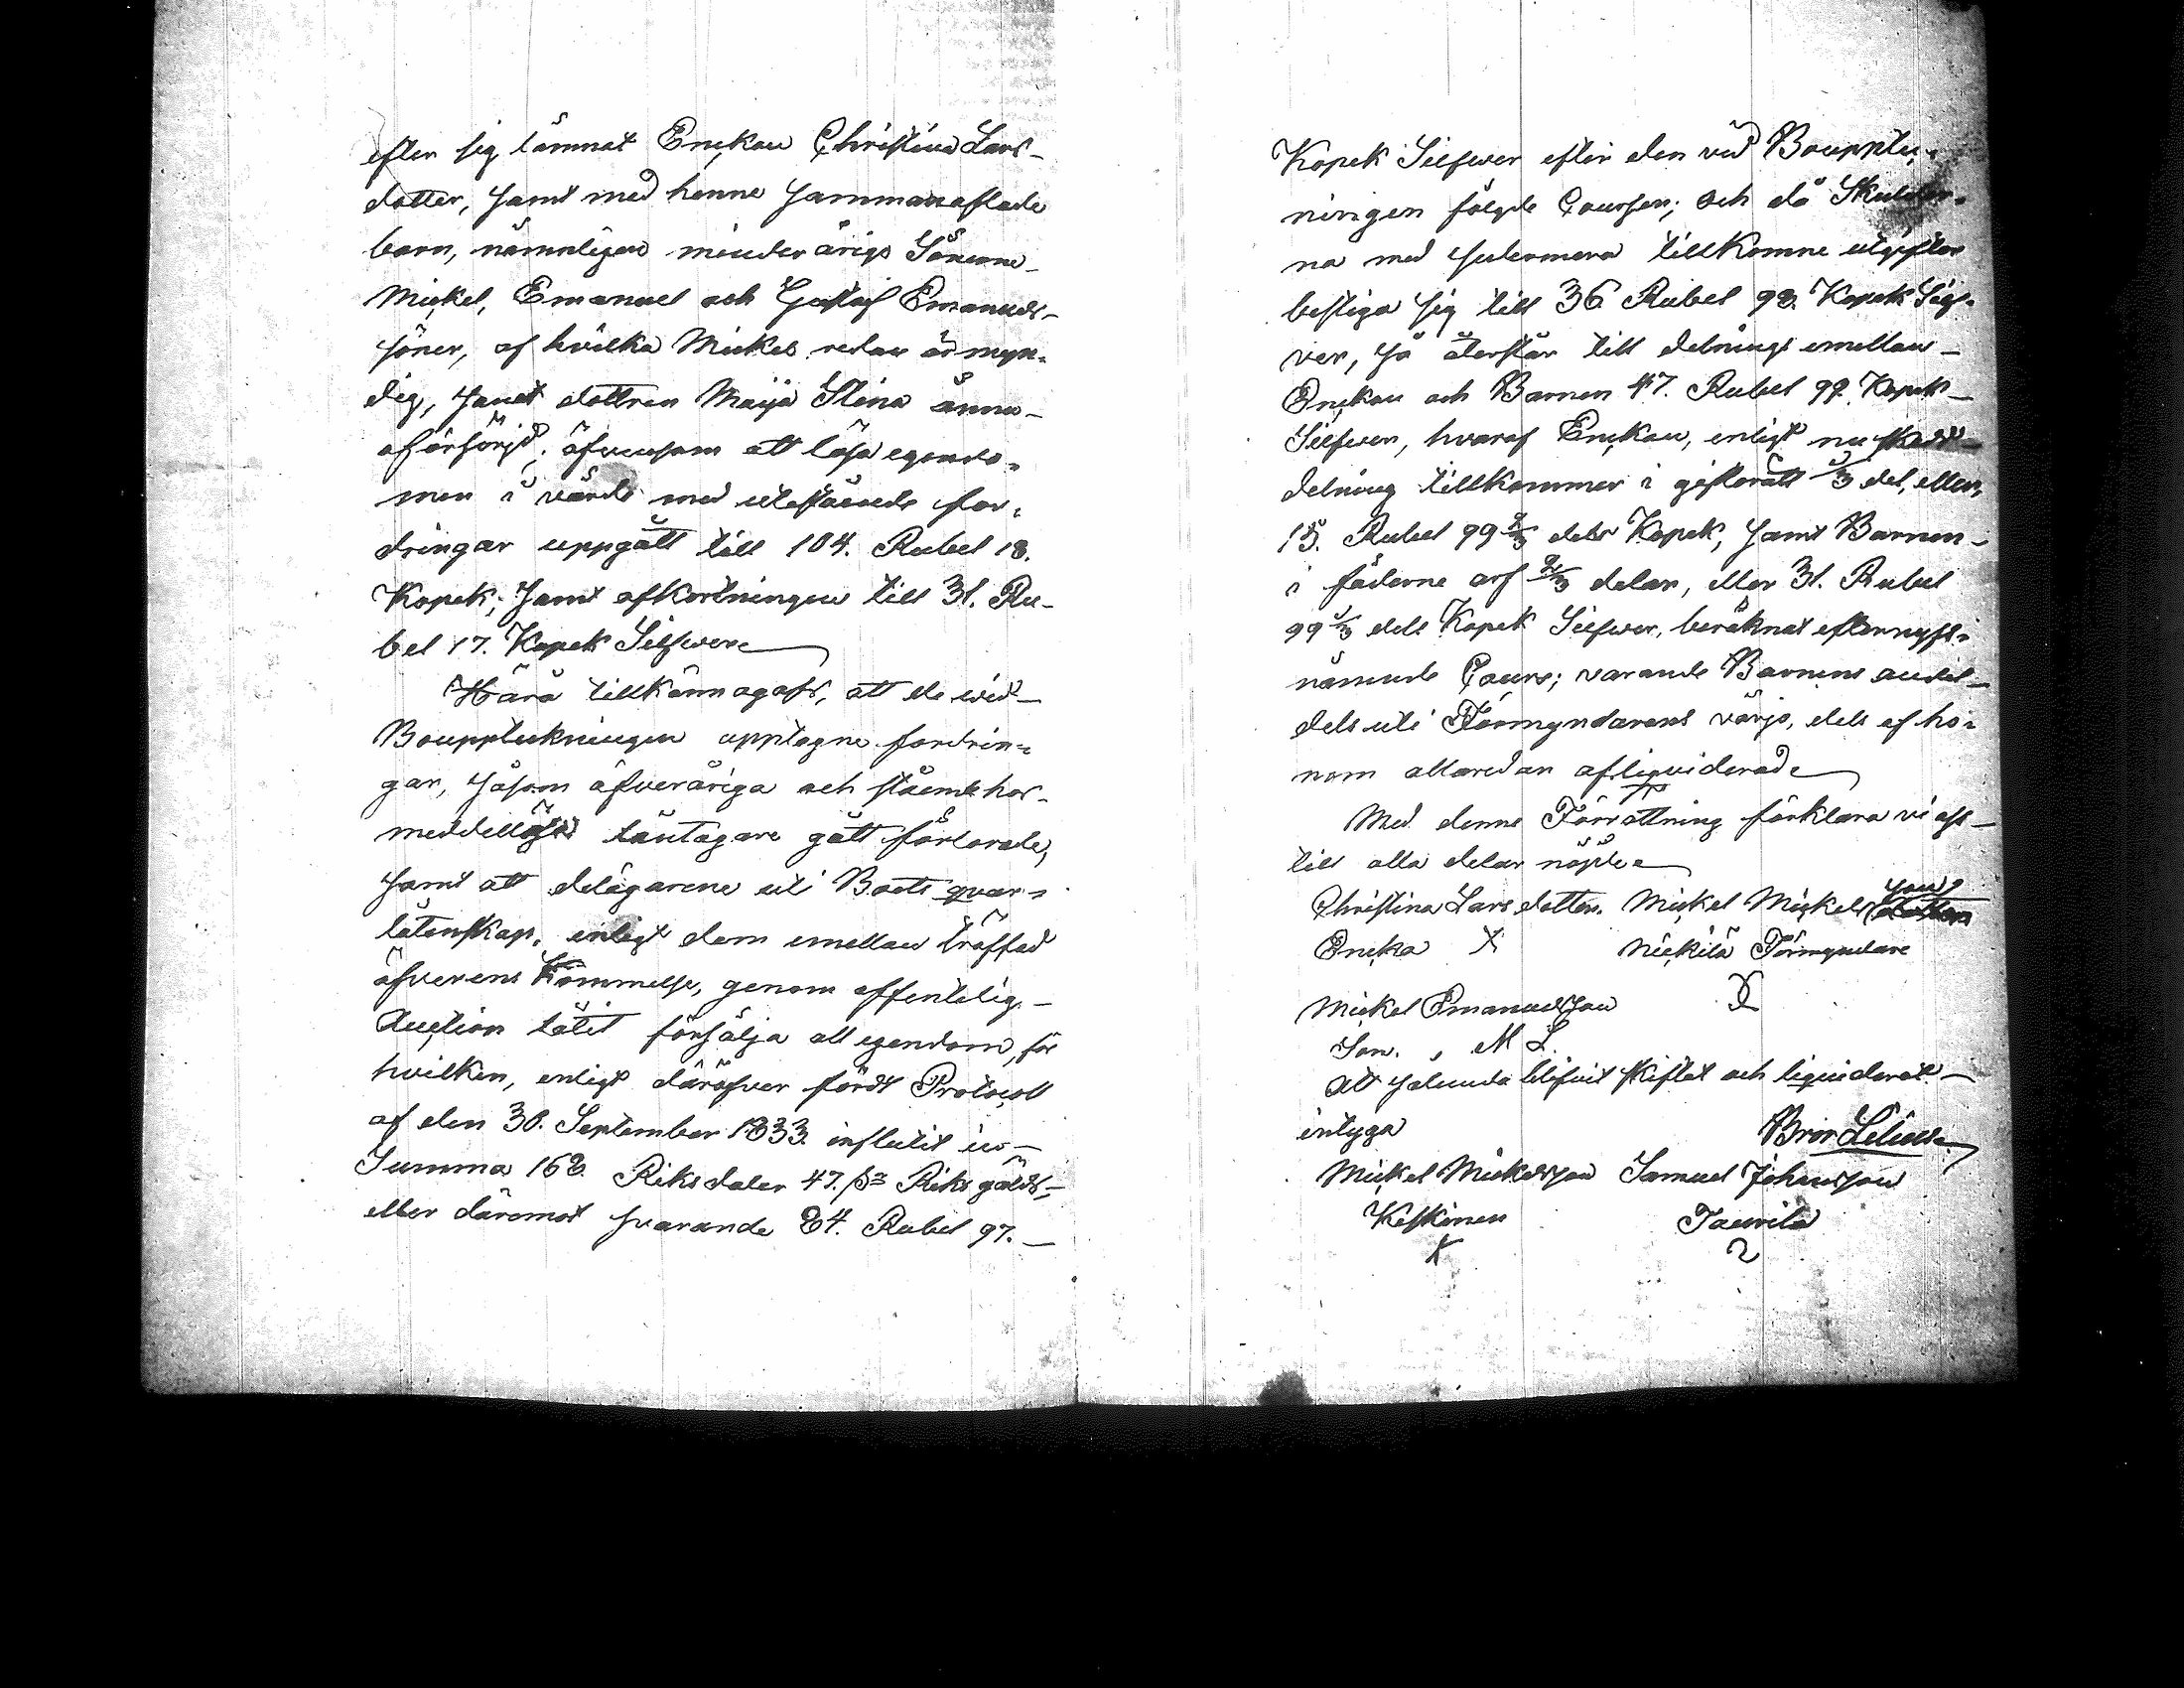 efter sig lämnat Enckan Christina Lars-
dotter, samt med henne sammanaflade
barn, nämnligen minderårige Sönerne
Mickel, Emanuel och Gustaf Emanuels-
söner, af hvilka Mickel redan är myn-
dig, samt dottren Maija Stina ännu
oförsörjd; äfvensom att lösa egendo-
men i värde med utestående for-
dringar uppgått till 104. Rubel 18.
Kopek; samt afkortningen till 31. Ru-
bel 17. Kopek Silfwer
Härå tillkännagafs, att de wid
Bouppteckningen upptagne fordrin-
gar, såsom äfveråriga och stående hos
meddellöse låntagare gått förlorade,
samt att delägarene uti Boets qvar-
låtenskap, enligt dem emellan träffad
öfverens kommelse, genom offentelig
Auction låtit försälja all egendom, för
hvilken, enligt däröfver fördt Protocoll
af den 30. September 1833. influtit in
Summa 168. Riksdaler 47. ß Riksgälds,
eller däremot svarande 84. Rubel 97.
Kopek Silfwer efter den vid Bouppteck-
ningen följde Coursen; och då Skulder-
na med sedermera tillkomne utgifter
bestiga sig till 36 Rubel 98. Kopek Silf-
ver, så återstår till delnings emellan
Enckan och Barnen 47. Rubel 99. Kopek
Silfwer, hvaraf Enckan, enligt nu skedd
delning tillkommer i giftorätt 1/3 del, eller
15. Rubel 99 2/3 dels Kopek, samt Barnen
i fäderne arf 2/3 delar, eller 31. Rubel
99 1/3 dels Kopek Silfwer, beräknat efter nyss-
nämnde Cours; varande Barnens andel
dels uti Förmyndarens värjo, dels af ho-
nom allaredan afliqviderade
Med denne Förrättning förklara vi oss
till alla delar nöjde
Christina Lars dotter. Mickel Mickels son
Encka X Nickilä Förmyndare
Mickel Emanuelsson
Son. M L.
Att sålunda blifvit skiftat och liquiderat
intyga Bror Lilius
Mickel Mickelsson Samuel Johansson
Keskinen Taurila
X